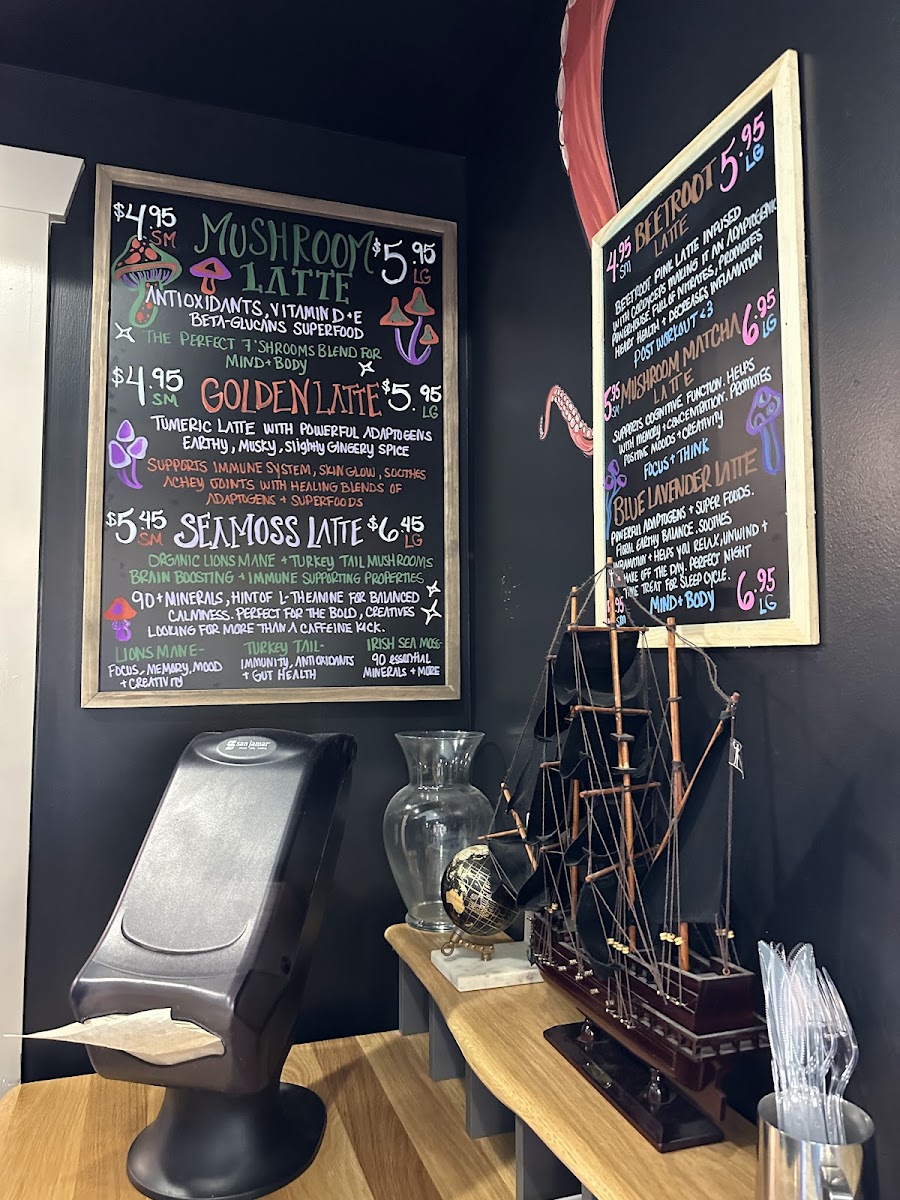 $4.95 SM
MUSHROOM LATTE
$5.95 LG
ANTIOXIDANTS, VITAMIN D+E
BETA-GLUCANS SUPERFOOD
THE PERFECT 7 'SHROOMS BLEND FOR
MIND+BODY
$4.95 SM
GOLDEN LATTE
$5.95 LG
TUMERIC LATTE WITH POWERFUL ADAPTOGENS
EARTHY, MUSKY, Slightly GINGERY SPICE
SUPPORTS IMMUNE SYSTEM, SKIN GLOW, SOOTHES
ACHEY JOINTS WITH HEALING BLENDS OF
ADAPTOGENS + SUPERFOODS
$5.45 SM
SEAMOSS LATTE
$6.45 LG
ORGANIC LIONS MANE + TURKEY TAIL MUSHROOMS
BRAIN BOOSTING + IMMUNE SUPPORTING PROPERTIES
90+MINERALS, HINT OF L-THEANINE FOR BALANCED
CALMNESS. PERFECT FOR THE BOLD, CREATIVES
LOOKING FOR MORE THAN A CAFFEINE KICK.
LIONS MANE-
FOCUS, MEMORY, MOOD
+CREATIVITY
TURKEY TAIL-
IMMUNITY, ANTIOXIDANTS
+ GUT HEALTH
IRISH SEA MOSS-
90 ESSENTIAL
MINERALS + MORE
4.95 SM
BEETROOT
LATTE
5.95 LG
BEETROOT PINK LATTE INFUSED
WITH CORDYCEPS MAKING IT AN ADAPTOGENIC
POWERHOUSE FULL OF NITRATES, PROMOTES
HEART HEALTH + DECREASES INFLAMMATION
POST WORKOUT <3
5.95 SM
MUSHROOM MATCHA
LATTE
6.95 LG
SUPPORTS COGNITIVE FUNCTION. HELPS
WITH MEMORY + CONCENTRATION. PROMOTES
POSITIVE MOODS + CREATIVITY
FOCUS + THINK
BLUE LAVENDER LATTE
POWERFULL ADAPTOGENS + SUPER FOODS.
FLORAL EARTHY BALANCE. SOOTHES
INFLAMMATION + HELPS YOU RELAX, UNWIND +
OFF THE DAY. PERFECT NIGHT
TIME TREAT FOR SLEEP CYCLE.
.95 SM
MIND + BODY
6.95 LG
san jamar